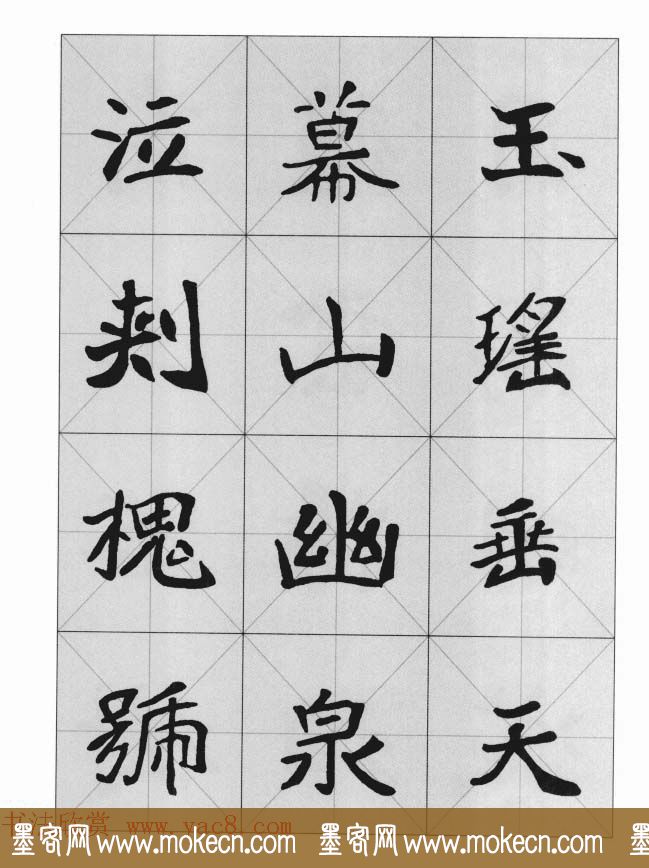 玉瑤垂天
幕山幽泉
泣刾槐號
书法欣赏 www.yac8.com
墨客网 www.mokecn.com 墨客网 www.mokecn.com